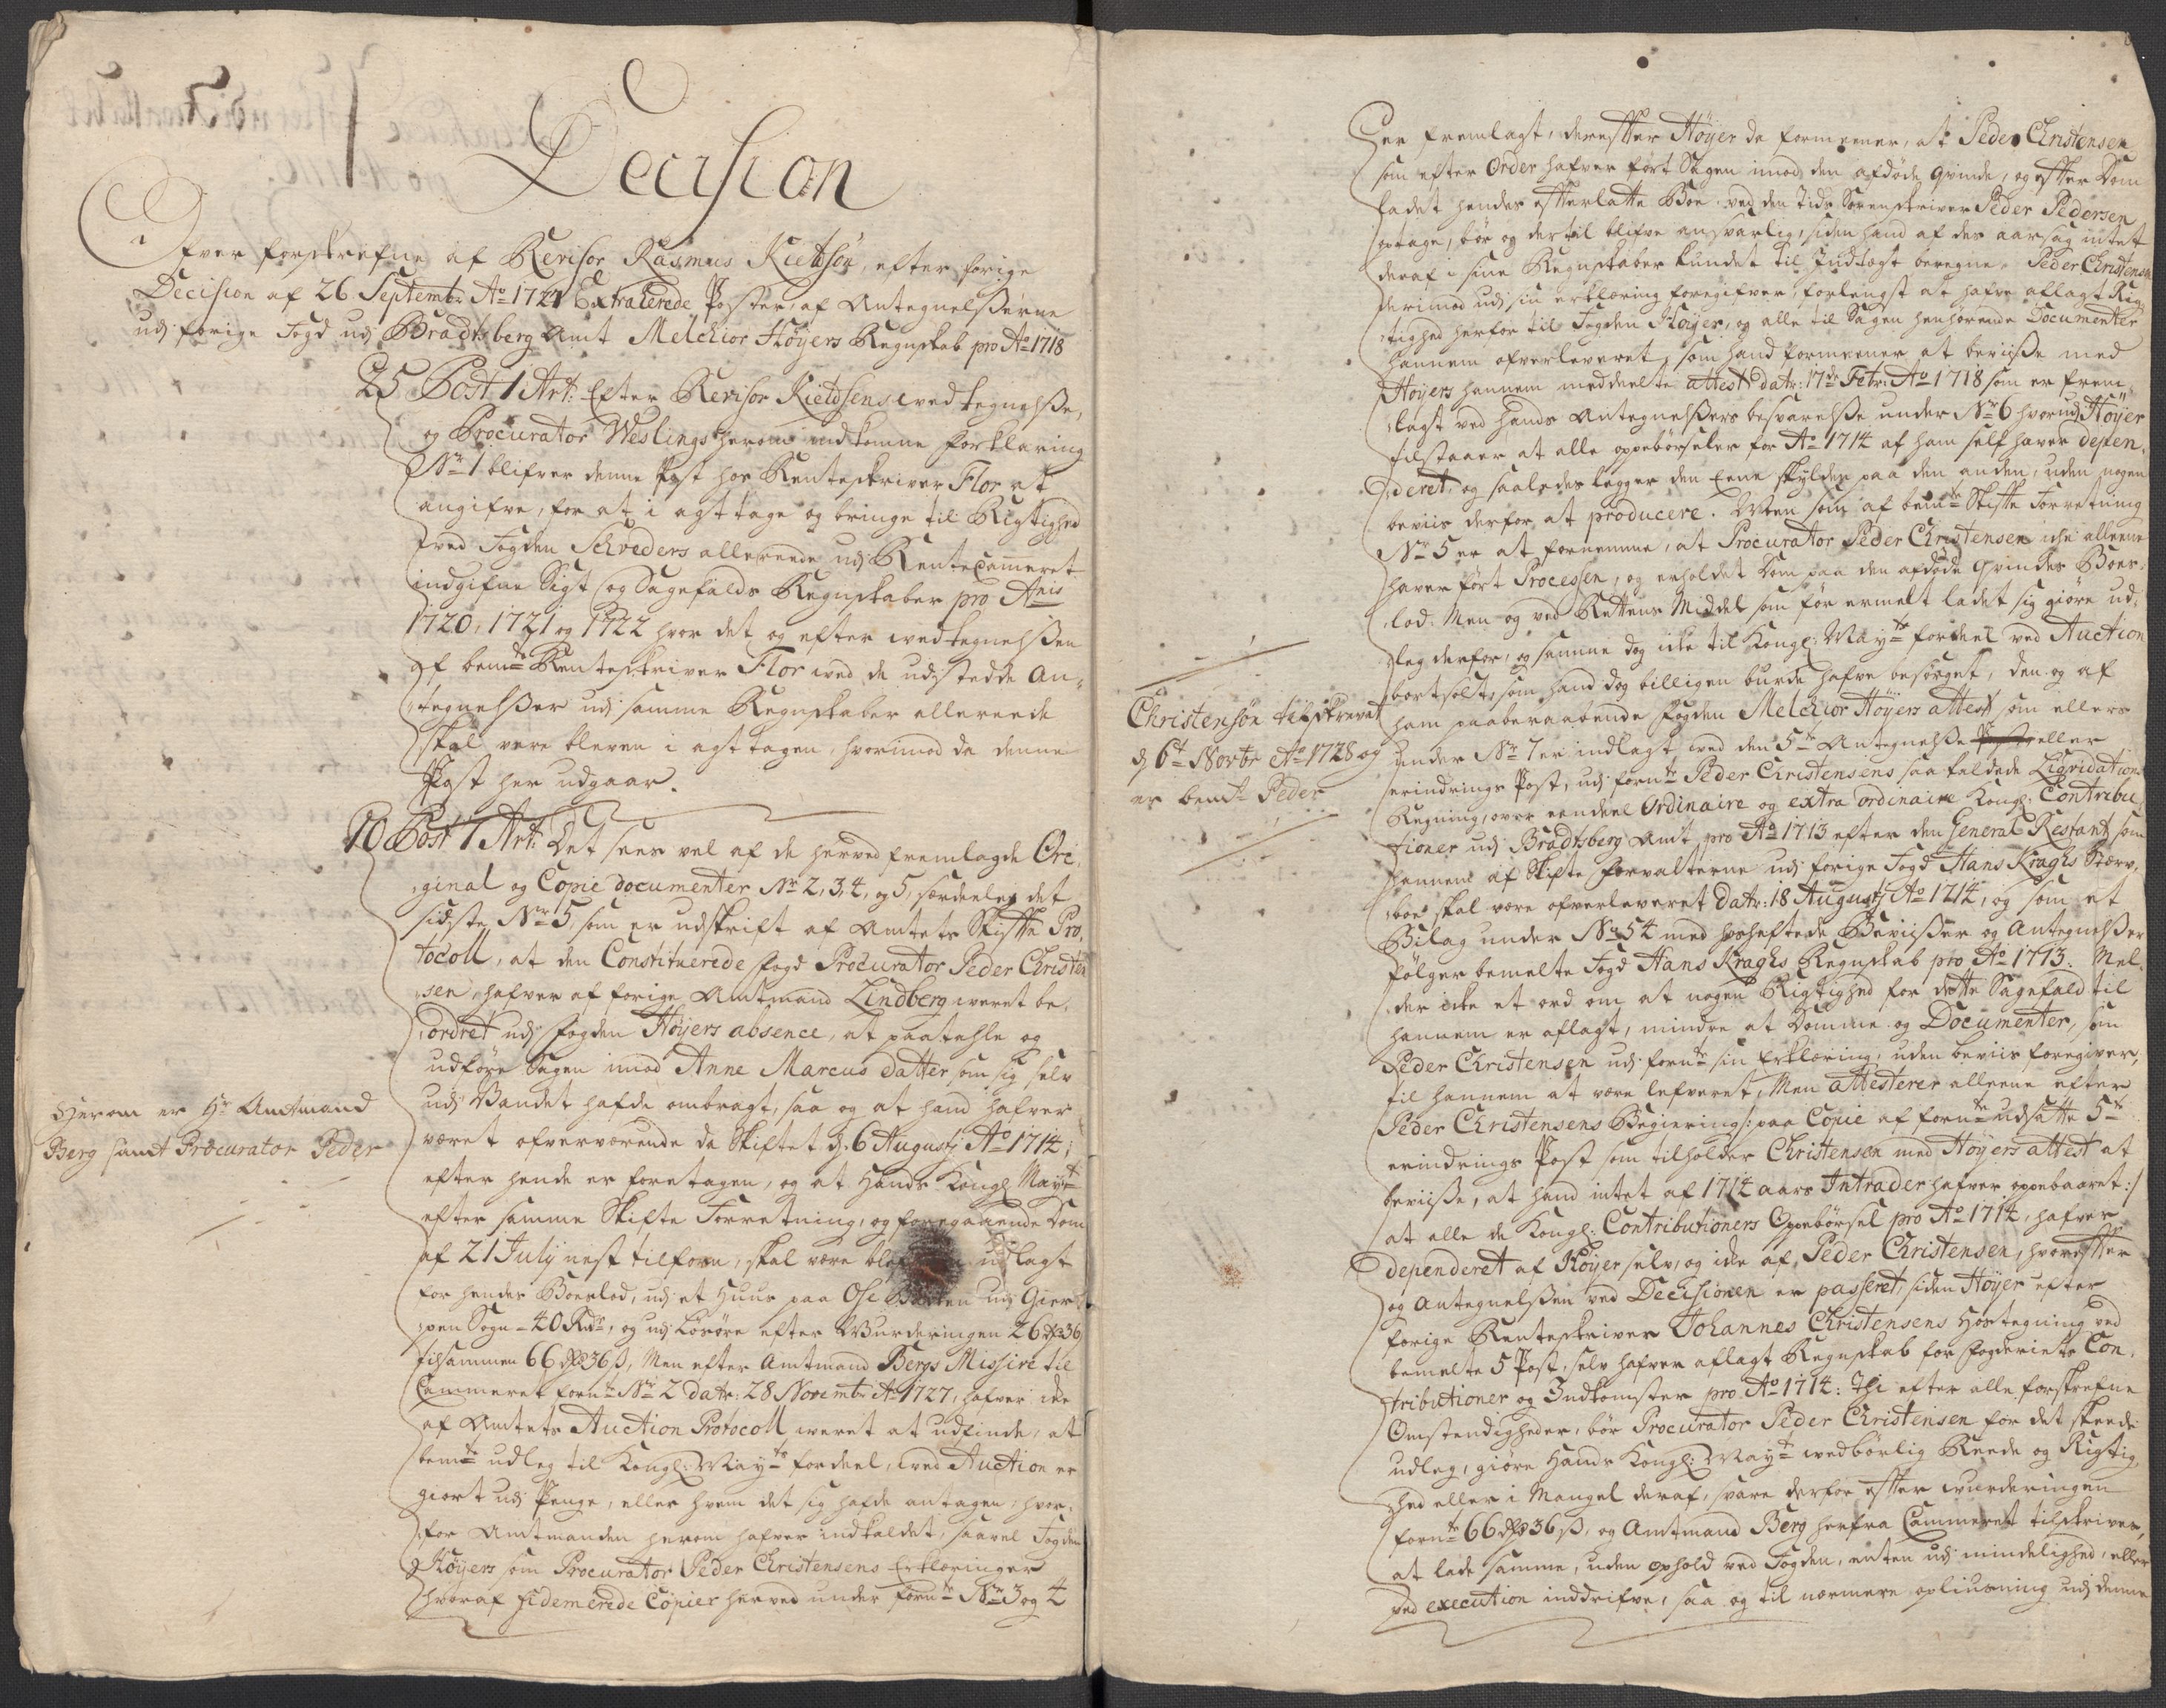 Decision
Ofver forskrefne af Revisor Rasmus Kieldsøn, efter forige
Decision af 26 Septembr Ao 1727 Extraherede Poster af Antegnelßerne
udj forige Fogd udj Bradtsberg Amt Melchior Høyers Regnskab pro Ao 1718
25 Post 1 Art: Efter Revisor Kieldsens ved tegnelße,
og Procurator Weslings herom indkomne forklaring
No 1 blifver denne Post hos Renteskriver Flor at
angifve, for at i agt tage og bringe til Rigtighed
ved Fogden Schreders allereede udj Rente Cammeret
indgifne Sigt og Sagefalds Regnskaber pro Anis
1720, 1721 og 1722 hvor det og efter ved tegnelßen
af bemte Renteskriver Flor ved de udstedde An-
tegnelßer udj samme Regnskaber allereede
skal vere bleven i agt tagen, hvorimod da denne
Post her udgaar.
10 Post 1 Art: Det sees vel af de herved fremlagde Ori-
ginal og Copie documenter No 2, 3, 4, og 5, særdeeles det
sidste No 5, som er udskrift af Amtets Skifte Pro-
tocoll, at den Constituerede fogd Procurator Peder Christen
sen, hafver af forige Amtmand Lindberg weret be-
ordret udj fogden Høyers absence, at paatahle og
udføre Sagen imod Anne Marcus datter som sig selv
udj Vandet hafde ombragt, saa og at hand hafver
været ofverværende da Skiftet d. 6 Augustj Ao 1714,
efter hende er foretagen, og at Hands Kongl Mayt
efter samme Skifte Forretning, og foregaaende Dom
af 21 July nest tilforn, skal være udlagt
for hendes Boeslod, udj et Huus paa Ose udj Gier-
pen Sogn - 40 Rdr, og udj Løsøre efter Wurderingen 26 rdr 36
tilsammen 66 rdr 36 ß, Men efter Amtmand Bergs Missive til
Cammeret fornte No 2 datr: 28 Novembr Ao 1727, hafver icke
af Amtets Auction Protocoll weret at udfinde, at
bemte udleg til Kongl: Mayts fordeel, ved Auction er
giort udj Penge, eller hvem det sig hafde antagen, hvor-
for Amtmanden herom hafver indkaldet, saavel Fogden
Høyers som Procurator Peder Christensens Erklæringer
hvoraf fidemerede Copier herved under fornte No 3 og 4
Herom er Hr Amtmand
Berg samt Procurator Peder
er fremlagt, derefter Høyer da formeener, at Peder Christensen
som efter Order hafver ført Sagen imod den afdøde qvinde, og efter Dom
ladet hendes efterlatte Boe ved den Tids Sorenskriver Peder Pedersen
optage, bør og dertil blifve ansvarlig, siden hand af den aarsag intet
deraf i sine Regnskaber kundet til Indtægt beregne. Peder Christensen
derimod udj sin erklæring foregifver, forlengst at hafve aflagt Rig-
tighed herfor til Fogden Høyer, og alle til Sagen henhørende Documenter
hannem ofverleveret, som hand formeener at beviiße med
Høyers hannem meddeelte attest datr: 17de Febr: Ao 1718 som er frem-
lagt ved hands Antegnelßers besvarelße under No 6 hvorudj Høyer
tilstaaer at alle oppebørseler for Ao 1714 af ham self haver depen-
deret, og saaledes legger den Eene skylden paa den anden, uden nogen
beviis derfor at producere. Men som af bemte Skifte Forretning
No 5 er at fornemme, at Procurator Peder Christensen icke alleene
haver ført Processen, og erholdet Dom paa den afdøde qvindes Boes-
lod. Men og ved Rettens Middel som før ermelt ladet sig giøre ud-
leg derfor, og samme dog icke til Kongl: Mayts fordeel ved Auction
bortsolt, som hand dog billigen burde hafve besørget, den og af
ham paaberaabende Fogden Melchior Høyers attest som ellers
under No 7 er indlagt, ved den 5te Antegnelße eller
erindrings Post, udj fornte Peder Christensens saa kaldede Liqvidations
Regning, over eendeel Ordinaire og extra ordinaire Kongl: Contribu-
tioner udj Bradtsberg Amt pro Ao 1713 efter den General Restantz som
hannem af Skifte forvalterne udj forige Fogd Hans Kraghs Sterv-
boe skal være ofverleveret datr: 18 Augustj Ao 1714, og som et
Bilag under No 54 med heftede Beviißer og Antegnelßer
følger bemelte Fogd Hans Kraghs Regnskab pro Ao 1713. Mel-
der icke et ord om at nogen Rigtighed for dette Sagefald til
hannem er aflagt, mindre at Domme og Documenter, som
Peder Christensen udj fornte sin Erklæring, uden beviis foregiver,
til hannem at være lefveret, Men attesterer alleene efter
Peder Christensens Begiering /: paa Copie af fornte udsatte 5te
erindrings Post som tilholder Christensen med Høyers attest at
beviiße, at hand intet af 1714 aars Intrader hafver oppebaaret :/
at alle de Kongl: Contributioners Oppebørsel pro Ao 1714, hafver
dependeret af Høyer selv, og icke af Peder Christensen, hvorefter
og Antegnelßen ved Decisionen er passeret, siden Høyer efter
forige Renteskriver Johannes Christensens Hostegning ved
bemelte 5 Post, selv hafver aflagt Regnskab for fogderiets Con-
tributioner og Indkomster pro Ao 1714: Thi efter alle forskrefne
Omstendigheder, bør Procurator Peder Christensen for det skeede
udleg, giøre Hands Kongl: Mayt wedbørlig Reede og Rigtig-
hed eller i Mangel deraf, svare derfor efter wurderingen
fornte 66 rdr 36 ß, og Amtmand Berg herfra Cammeret tilskrives,
at lade samme, uden ophold ved Fogden, enten udj mindelighed, eller
ved execution inddrifve, saa og til nærmere opliusning udj denne
Christensøn tilskrevet
d 6t Novbr Ao 1728 og
er bemte Peder